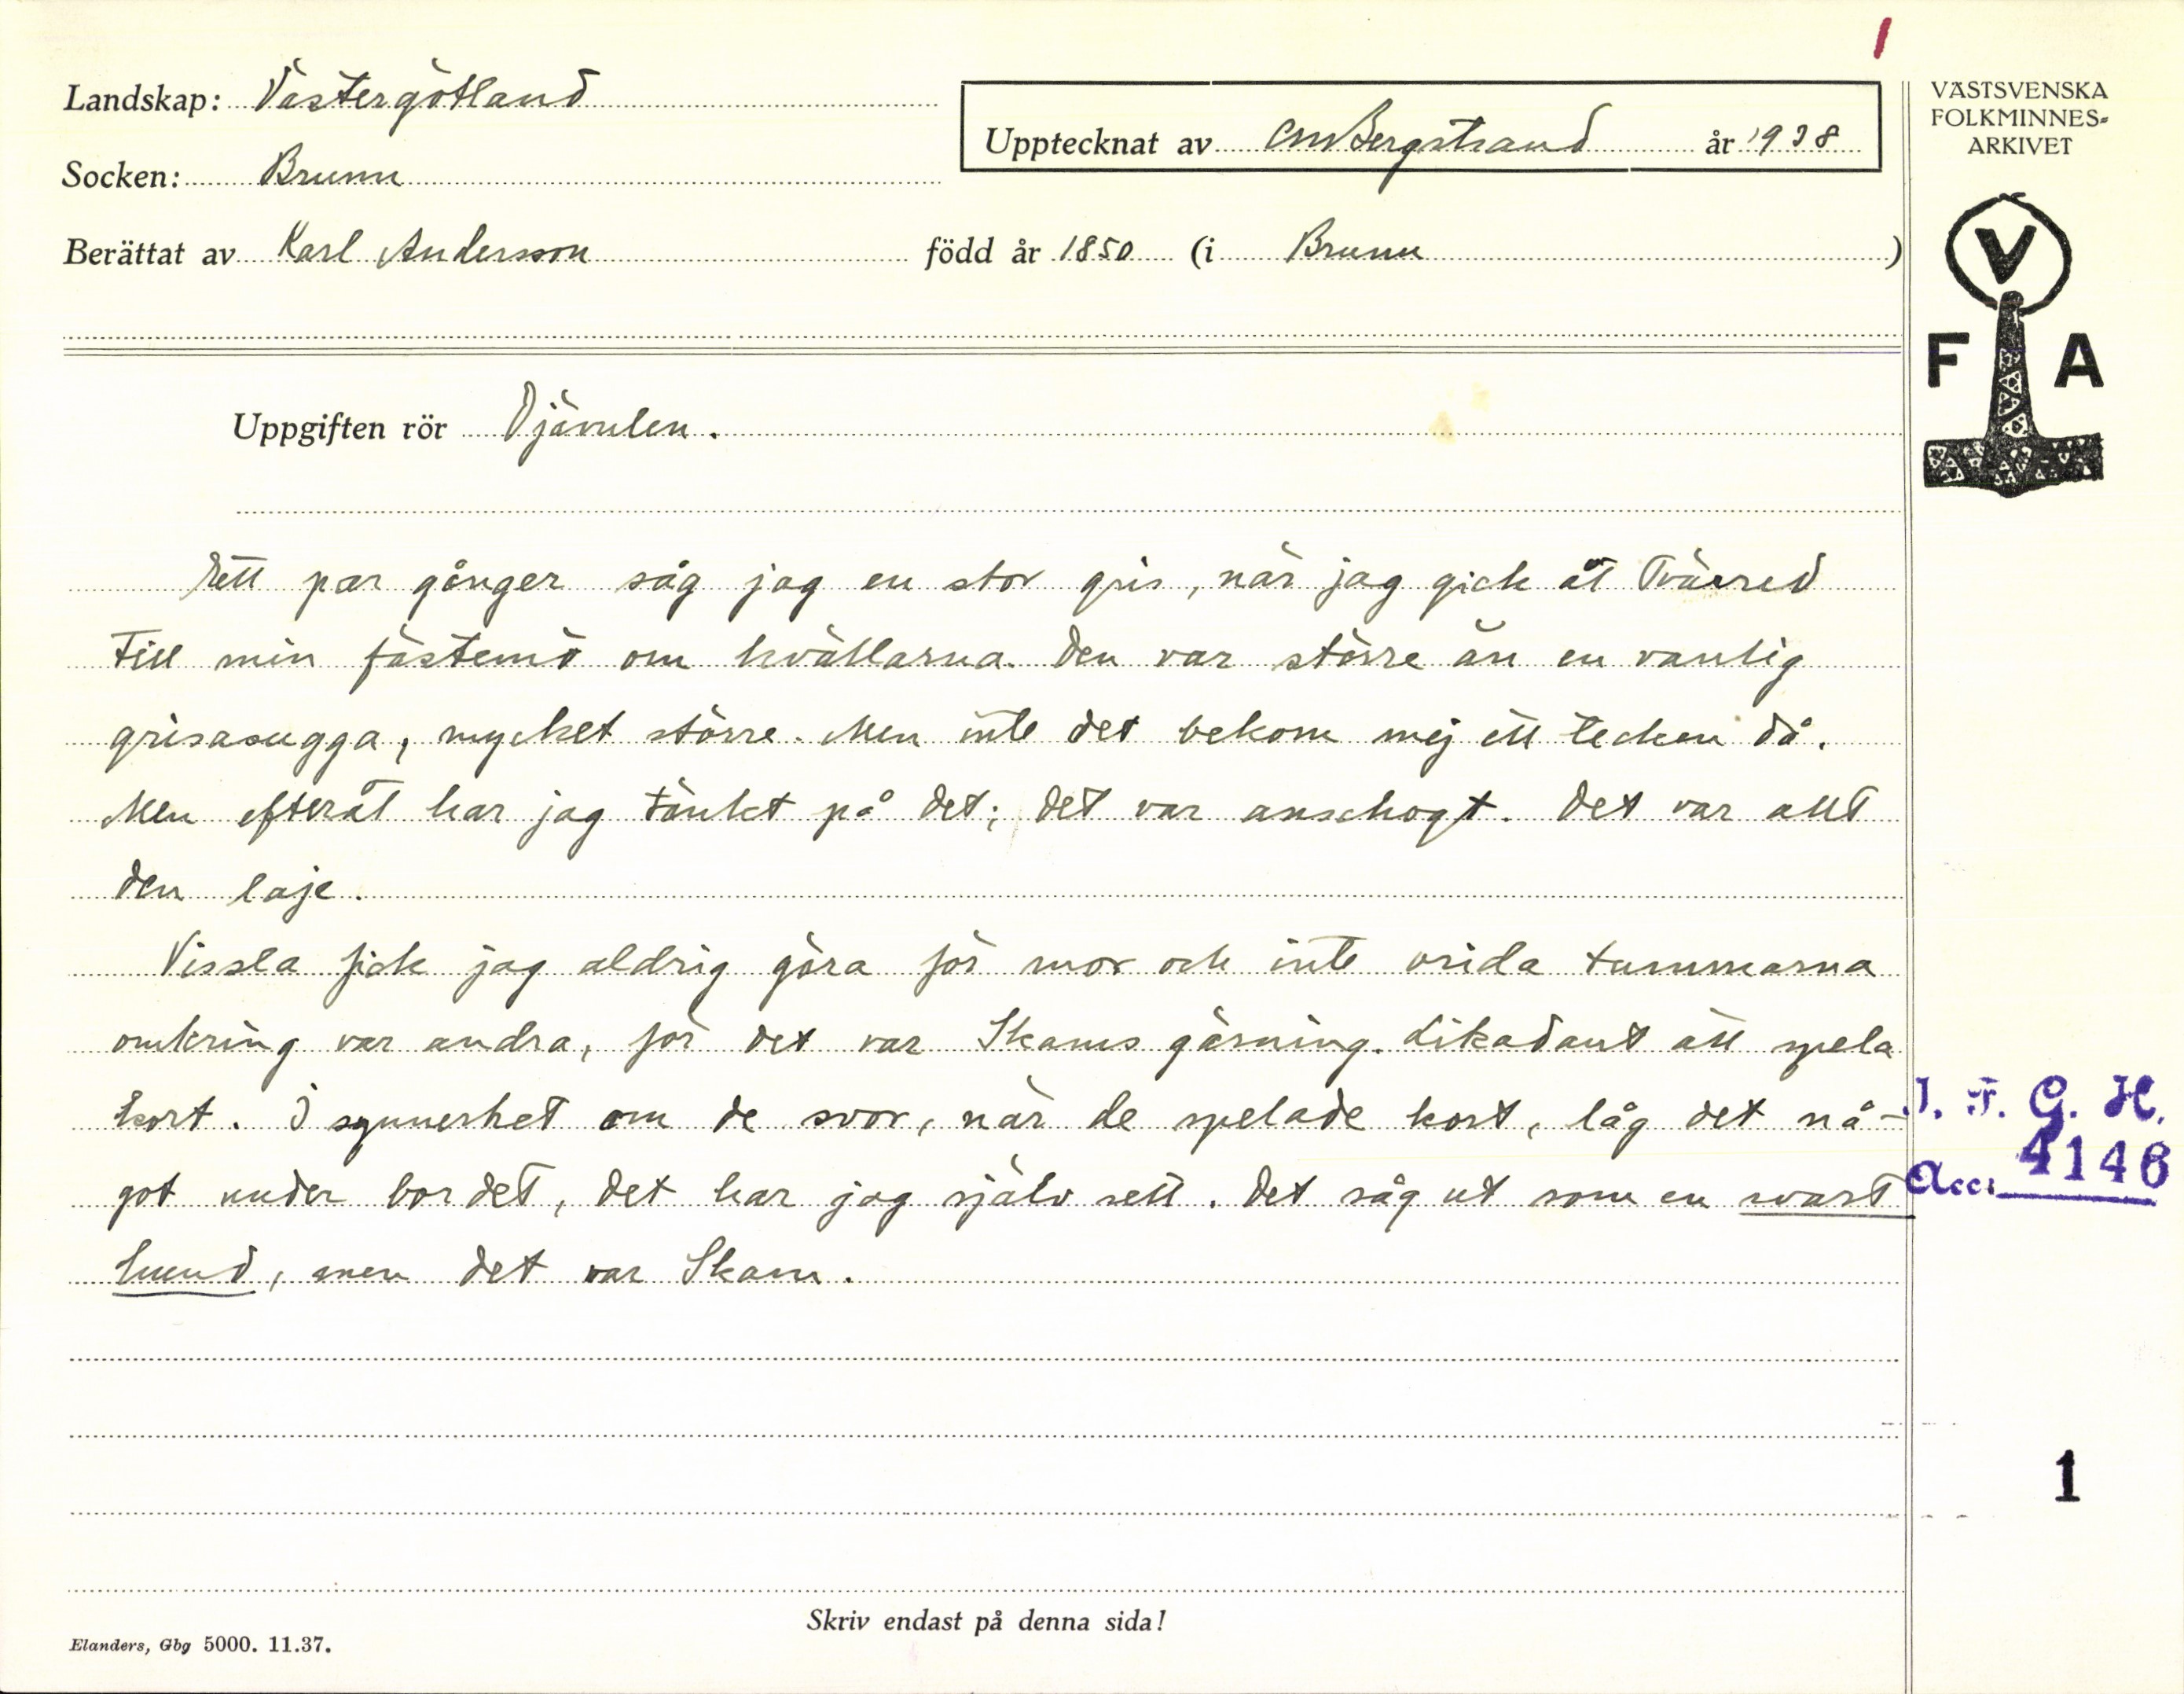 1
Landskap: Västergötland
Socken: Brunn
Berättat av Karl Andersson född år 1850 (i Brunn )
Upptecknat av CMBergstrand år 1938
VÄSTSVENSKA
FOLKMINNES-
ARKIVET
V
F A
Uppgiften rör Djävulen.
Ett par gånger såg jag en stor gris, när jag gick åt Tvärred
till min fästemö om kvällarna. Den var större än en vanlig
grisasugga, mycket större. Men inte det bekom mej ett tecken då.
Men efteråt har jag tänkt på det; det var anschogt. Det var allt
den laje.
Vissla fick jag aldrig göra för mor och inte vrida tummarna
omkring var andra, för det var Skams gärning. Likadant att spela
kort. I synnerhet om de svor, när de spelade kort, låg det nå-
got under bordet, det har jag själv sett. Det såg ut som en svart
hund, men det var Skam.
I. F. G. H.
Acc. 4146
1
Skriv endast på denna sida!
Elanders, Gbg 5000. 11.37.